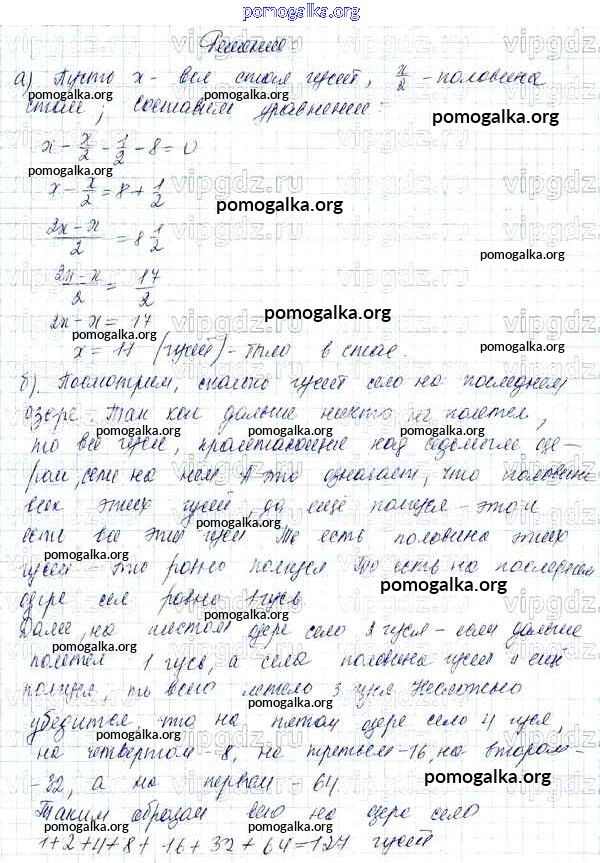 pomogalka.org
Решение:
а) Пусть x - вся стая гусей, x/2 - половина
стаи, составим уравнение:
pomogalka.org
x - x/2 - 1/2 - 8 = 0
pomogalka.org
x - x/2 = 8 + 1/2
pomogalka.org
(2x - x)/2 = 8 1/2
pomogalka.org
(2x - x)/2 = 17/2
pomogalka.org
2x - x = 17
pomogalka.org
x = 17 (гусей) - было в стае.
б) Посмотрим, сколько гусей село на последнем
pomogalka.org
озере. Так как дальше никто не полетел,
pomogalka.org pomogalka.org
то все гуси, пролетающие над седьмым озе-
ром, сели на нем. А это означает, что половина
pomogalka.org
всех этих гусей, да ещё полгуся - это и
pomogalka.org
есть все эти гуси. То есть половина этих
pomogalka.org
гусей - это ровно полгуся. То есть на последнем
pomogalka.org
озере сел ровно 1 гусь.
pomogalka.org
Далее, на шестом озере село 2 гуся - если дальше
pomogalka.org
полетел 1 гусь, а села половина гусей и ещё
pomogalka.org
полгуся, то всего летело 3 гуся. Несложно
pomogalka.org
убедится, что на пятом озере село 4 гуся,
pomogalka.org
на четвертом - 8, на третьем - 16, на втором -
- 32, а на первом - 64.
pomogalka.org
Таким образом всего на озере село
pomogalka.org pomogalka.org
1+2+4+8+16+32+64=127 гусей.
vipgdz.ru